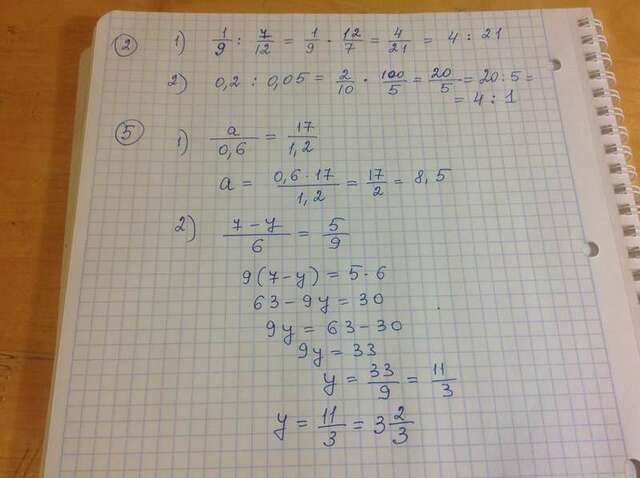 2 1) 1/9 : 7/12 = 1/9 · 12/7 = 4/21 = 4 : 21
2) 0,2 : 0,05 = 2/10 · 100/5 = 20/5 = 20 : 5 =
= 4 : 1
5 1) a/0,6 = 17/1,2
a = 0,6 · 17/1,2 = 17/2 = 8,5
2) 7 - y/6 = 5/9
9(7-y) = 5·6
63 - 9y = 30
9y = 63 - 30
9y = 33
y = 33/9 = 11/3
y = 11/3 = 3 2/3